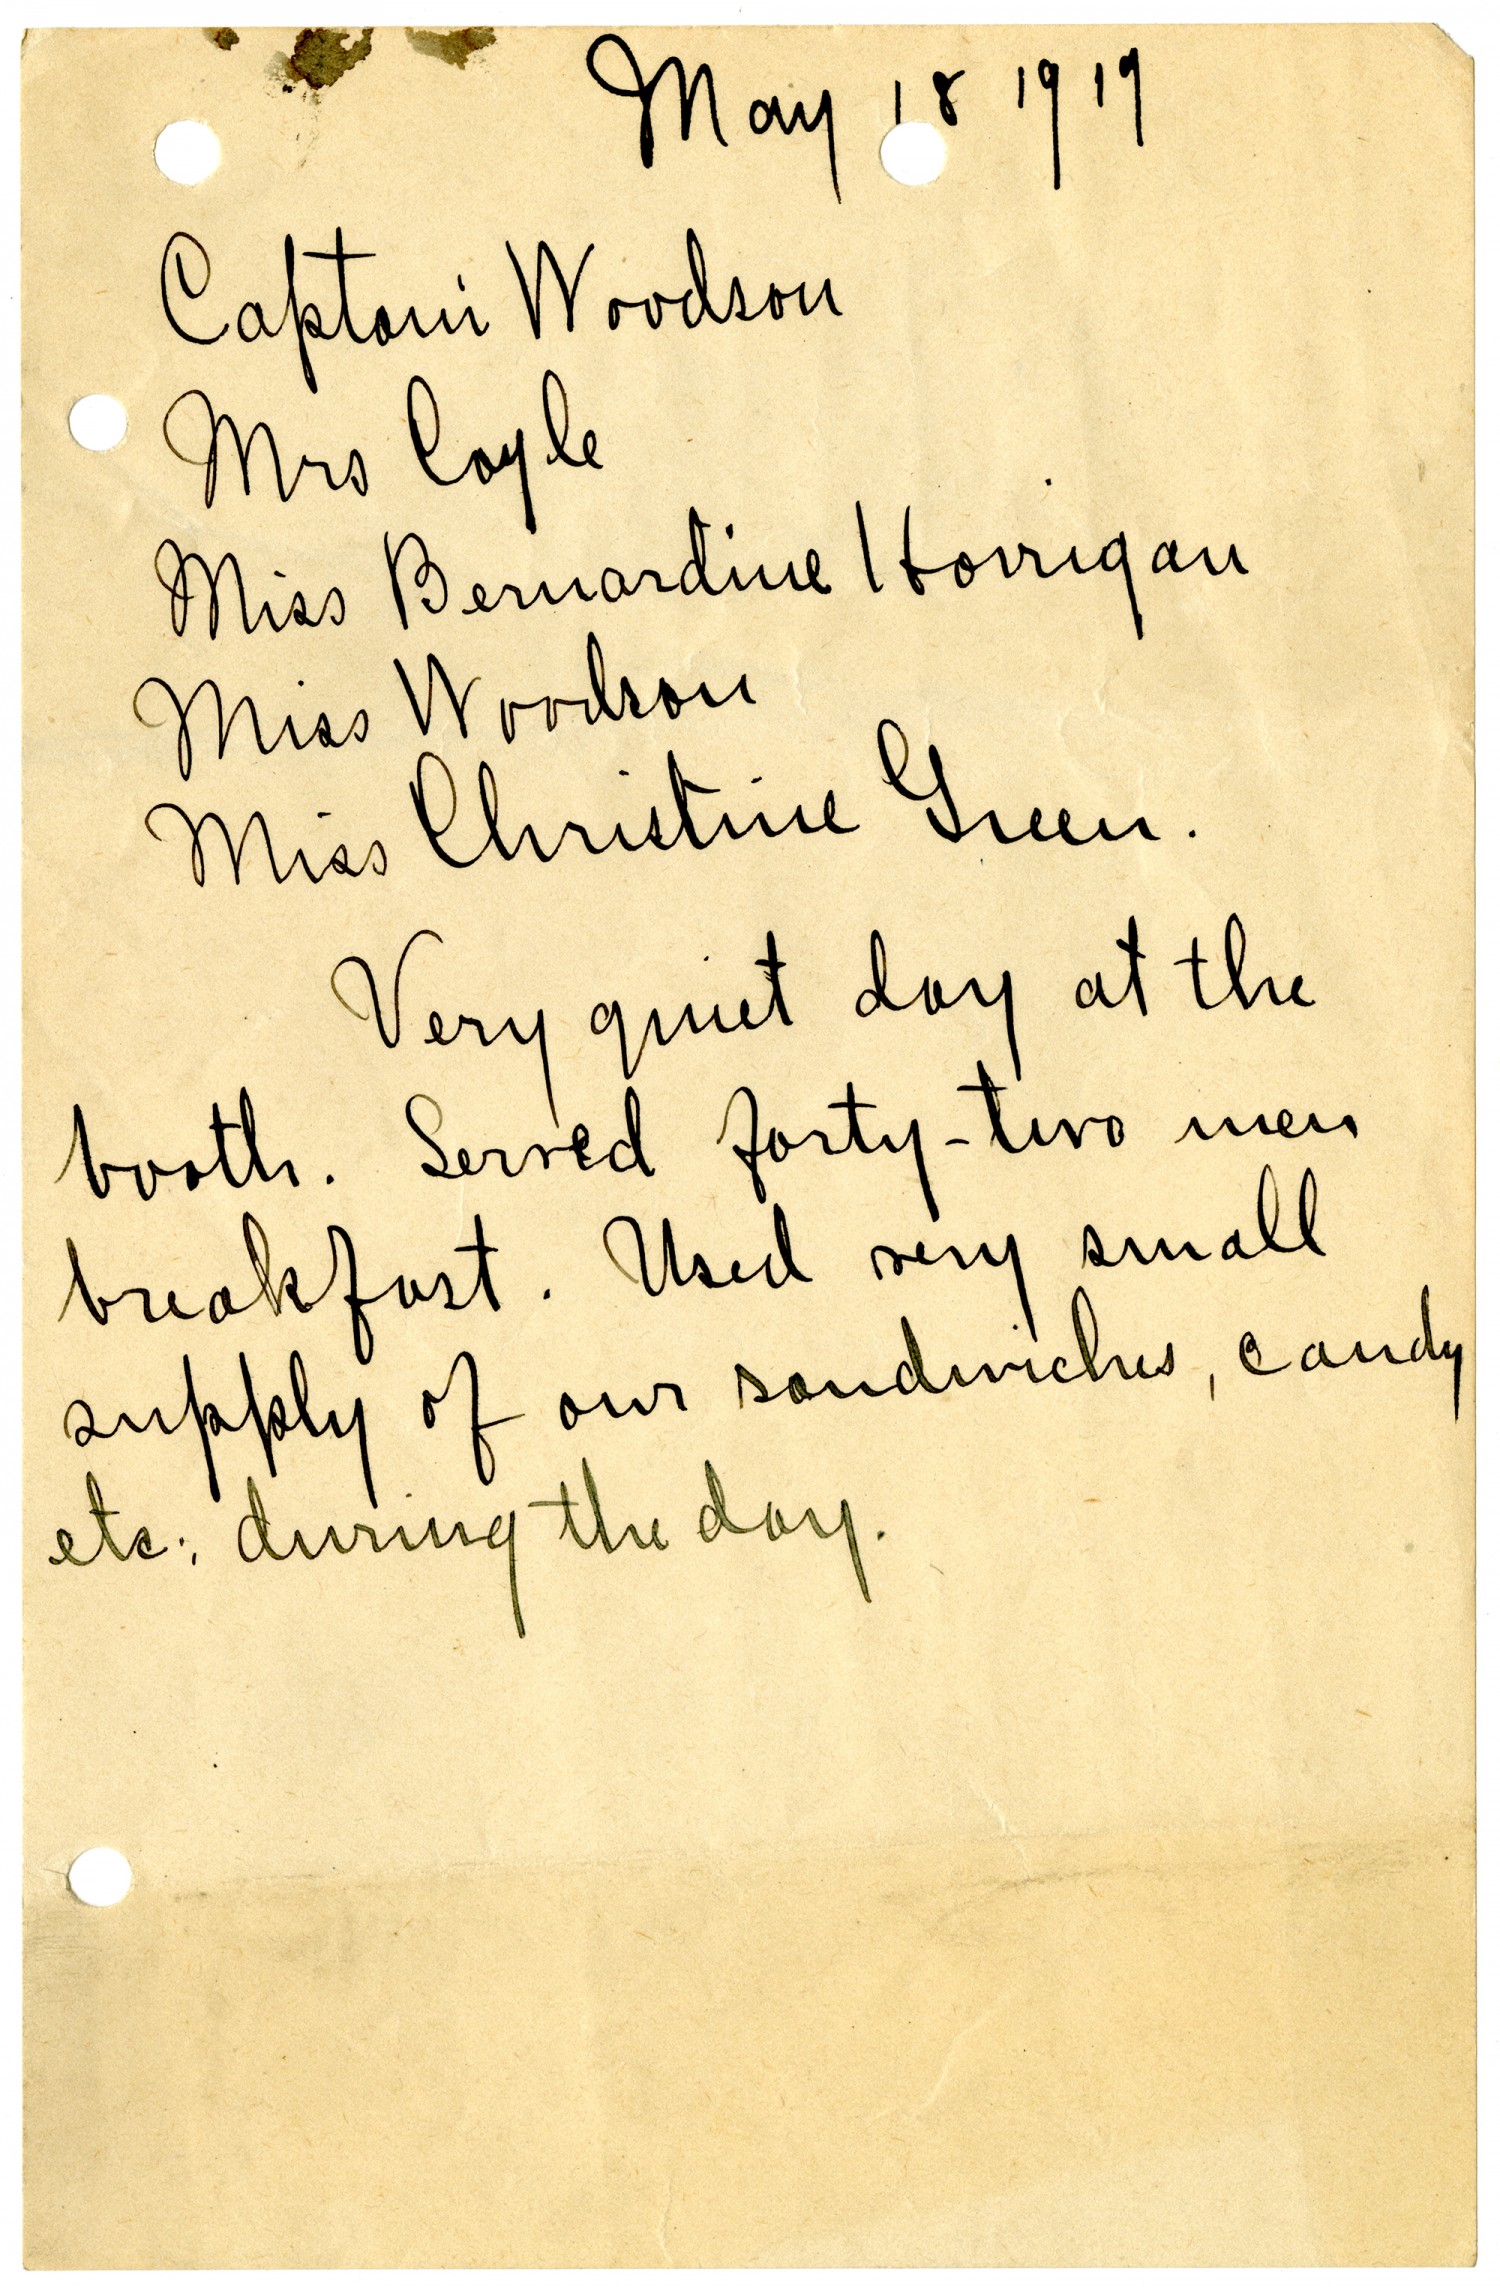 May 18 1919
Captain Woodson
Mrs Coyle
Miss Bernardine Horrigan
Miss Woodson
Miss Christine Green.
Very quiet day at the
booth. Served forty-two men
breakfast. Used very small
supply of our sandwiches, candy
etc., during the day.